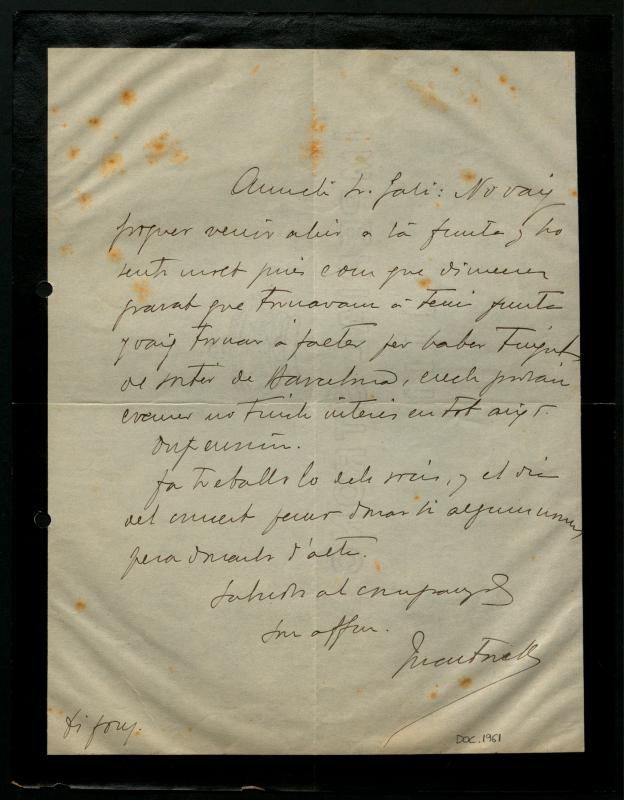 Amich Sr. Gali: No vaig
poguer venir ahir a la junta y ho
sento molt pues com que dimecres
passat que tornavam á tenir junta
y vaig tornar á faltar per haber tingut
de sortir de Barcelona, crech podrán
creurer no tinch interés en tot aixó.
Dispensin.
fa treballs lo dels socis, y el dia
del concert penso donarli alguns noms
pera donarlos d'alta.
Saludi al company
Son affm.
DOC. 1961